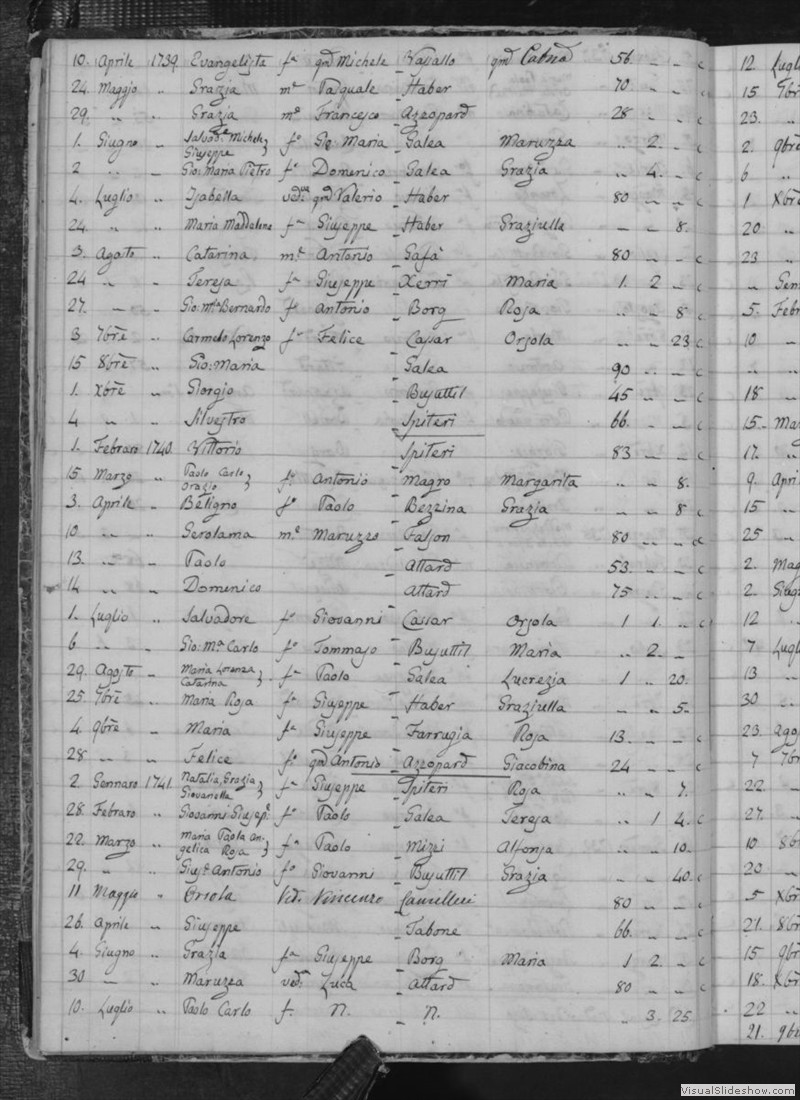 10. Aprile 1739. Evangelista fª qm̃ Michele Vassallo qm̃ 56. „ „ c
24. Maggio „ Grazia mᵉ Pasquale Haber 70 „ „ c
29. „ „ Grazia mᵉ Francesco Azzopard 28 „ „ c
1. Giugno „ Salvodʳᵉ Michele Giuseppe } fº Gio. Maria Galea Maruzza „ 2. „ c
2 „ „ Gio: Maria Pietro fº Domenico Galea Grazia „ 4. „ c
4. Luglio „ Isabella vedᵛᵃ qm̃ Valerio Haber 80 „ „ c
24. „ „ Maria Maddalena fª Giuseppe Haber Graziulla „ „ 8.
3. Agosto „ Catarina mᵉ Antonio Gafà 80 „ „ c
24 „ „ Teresa fª Giuseppe Xerri Maria 1. 2 „ c
27. „ „ Gio: Mª Bernardo fº Antonio Borg Rosa „ „ 8 c
3 7bre „ Carmelo Lorenzo fº Felice Cassar Orsola „ „ 23 c
15 8bre „ Gio: Maria Galea 90 „ „ c
1. Xbre „ Giorgio Busuttil 45 „ „ c
4 „ „ Silvestro Spiteri 66. „ „ c
1. Febraro 1740. Vittorio Spiteri 83 „ „ c
15 Marzo „ Paolo Carlo Orazio } fº Antonio Magro Margarita „ „ 8.
3. Aprile „ Beligno fº Paolo Bezzina Grazia „ „ 8 c
10 „ „ Gerolama mᵉ Maruzzo Falson 80 „ „ c
13. „ „ Paolo Attard 53. „ „ c
14 „ „ Domenico Attard 75 „ „ c
1. Luglio „ Salvadore fº Giovanni Cassar Orsola 1 1. „ c
6 „ „ Gio: Mª Carlo fº Tommaso Busuttil Maria „ 2. „
29. Agosto „ Maria Lorenza Catarina } fª Paolo Galea Lucrezia 1 „ 20.
25. 7bre „ Maria Rosa fª Giuseppe Haber Graziulla „ „ 5.
4. 9bre „ Maria fª Giuseppe Farrugia Rosa 13. „ „ c
28 „ „ Felice fº qm̃ Antonio Azzopard Giacobina 24 „ „ c
2. Gennaro 1741. Natalia, Grazia Giovanella } fª Giuseppe Spiteri Rosa „ „ 7.
28. Febraro „ Giovanni Giusepᵉ fº Paolo Galea Teresa „ 1 4. c
22. Marzo „ Maria Paola Angelica Rosa } fª Paolo Mizzi Alfonsa „ „ 10. c
29. „ „ Giusᵉ Antonio fº Giovanni Busuttil Grazia „ „ 40. c
11 Maggio „ Orsola Ved. Vincenzo 80 „ „ c
26. Aprile „ Giuseppe Tabone 66. „ „ c
4. Giugno „ Grazia fª Giuseppe Borg Maria 1 2. „ c
30 „ „ Maruzza vedª Luca Attard 80 „ „ c
10. Luglio „ Paolo Carlo f. N. N. „ 3. 25.
12
15
23.
2.
6
1 Xbre
20
23
„
5.
10
„
18
15.
17.
9.
15
25
2.
2.
12
7
13
30
23.
7
22.
27.
10
20
5
21.
15
18.
22
21.
VisualSlideshow.com